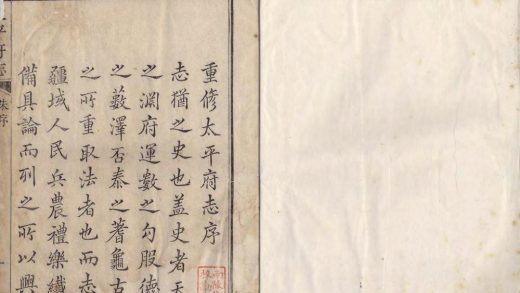 重修太平府志序
志猶之史也盖史者天
之淵府運數之勾股德
之藪澤否泰之蓍龜古
之所重取法者也而志
疆域人民兵農禮樂纖
備具論而列之所以興
平府志
朱序